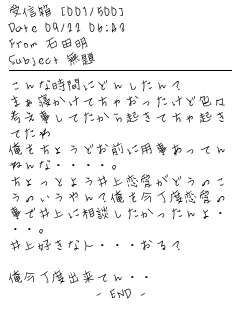 受信箱 [001/500]
Date 09/22 06:48
From 石田明
Subject 無題
こんな時間にどんしたん?
まぁ寝かけてちゃおったけど色々
考え事してたから起きてちゃ起き
てたわ
俺もちょうどお前に用事あってん
ねんな・・・・。
ちょっとよう井上恋愛がどうのこ
うのいうやんて俺も今丁度恋愛の
事で井上に相談したかったんよ・
・・。
井上好きな人・・・おる?
俺今丁度出来てん・・
- END -